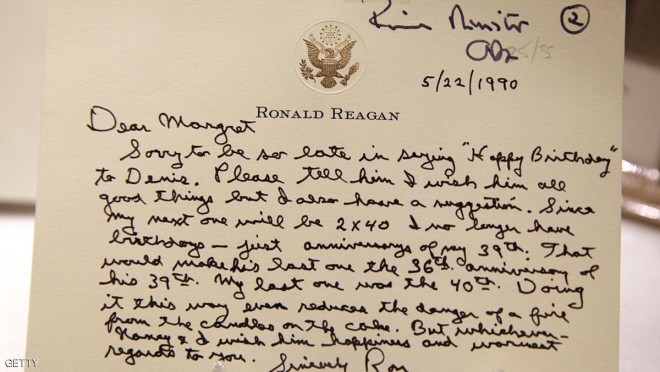 Prime Minister
2
25/5
5/22/1990
RONALD REAGAN
Dear Margret
Sorry to be so late in saying "Happy Birthday"
to Denis. Please tell him I wish him all
good things but I also have a suggestion. Since
my next one will be 2x40 I no longer have
birthdays — just anniversarys of my 39th. That
would make his last one the 36th anniversary of
his 39th. My last one was the 40th. Doing
it this way even reduces the danger of a fire
from the candles on the cake. But whichever—
Nancy & I wish him happiness and warmest
regards to you.
Sincerely Ron
GETTY